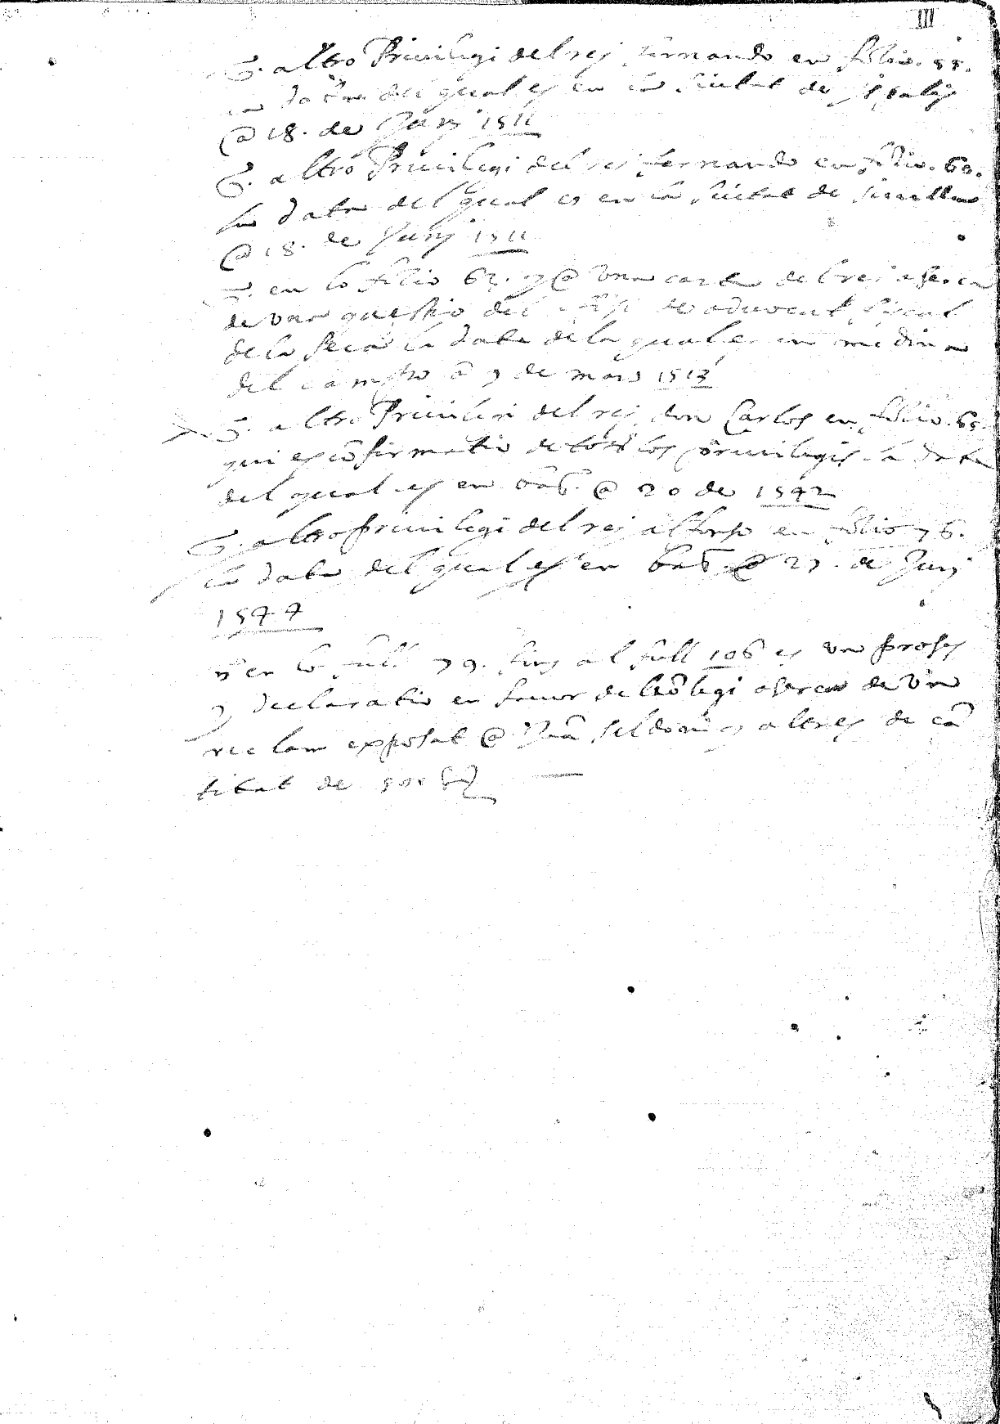 III
altro Privilegi del rey fernando en folio. 55.
la data del qual es en la Ciutat de
@ 18. de Juny 1511
altro Privilegi del rey fernando en folio. 60.
la data del qual es en la Ciutat de sivilla
@ 18. de Juny 1511
en lo folio 62. y @ una carta del rey aserca
de una questio del offici de advocat fiscal
de la seca la data de la qual es en medina
del campo a 9 de mars 1513
altro Privilegi del rey don Carlos en folio. 65.
qui es cõfirmatio de tots los privilegis la data
del qual es en @ 20 de 1542
altro privilegi del rey alfonso en folio 76.
la data del qual es en @ 27. de Juny
1544
en lo full 79. fins al full 106 es un proses
y declaratio en favor del colegi aserca de un
reclam exposat @ y altres de cã
titat de